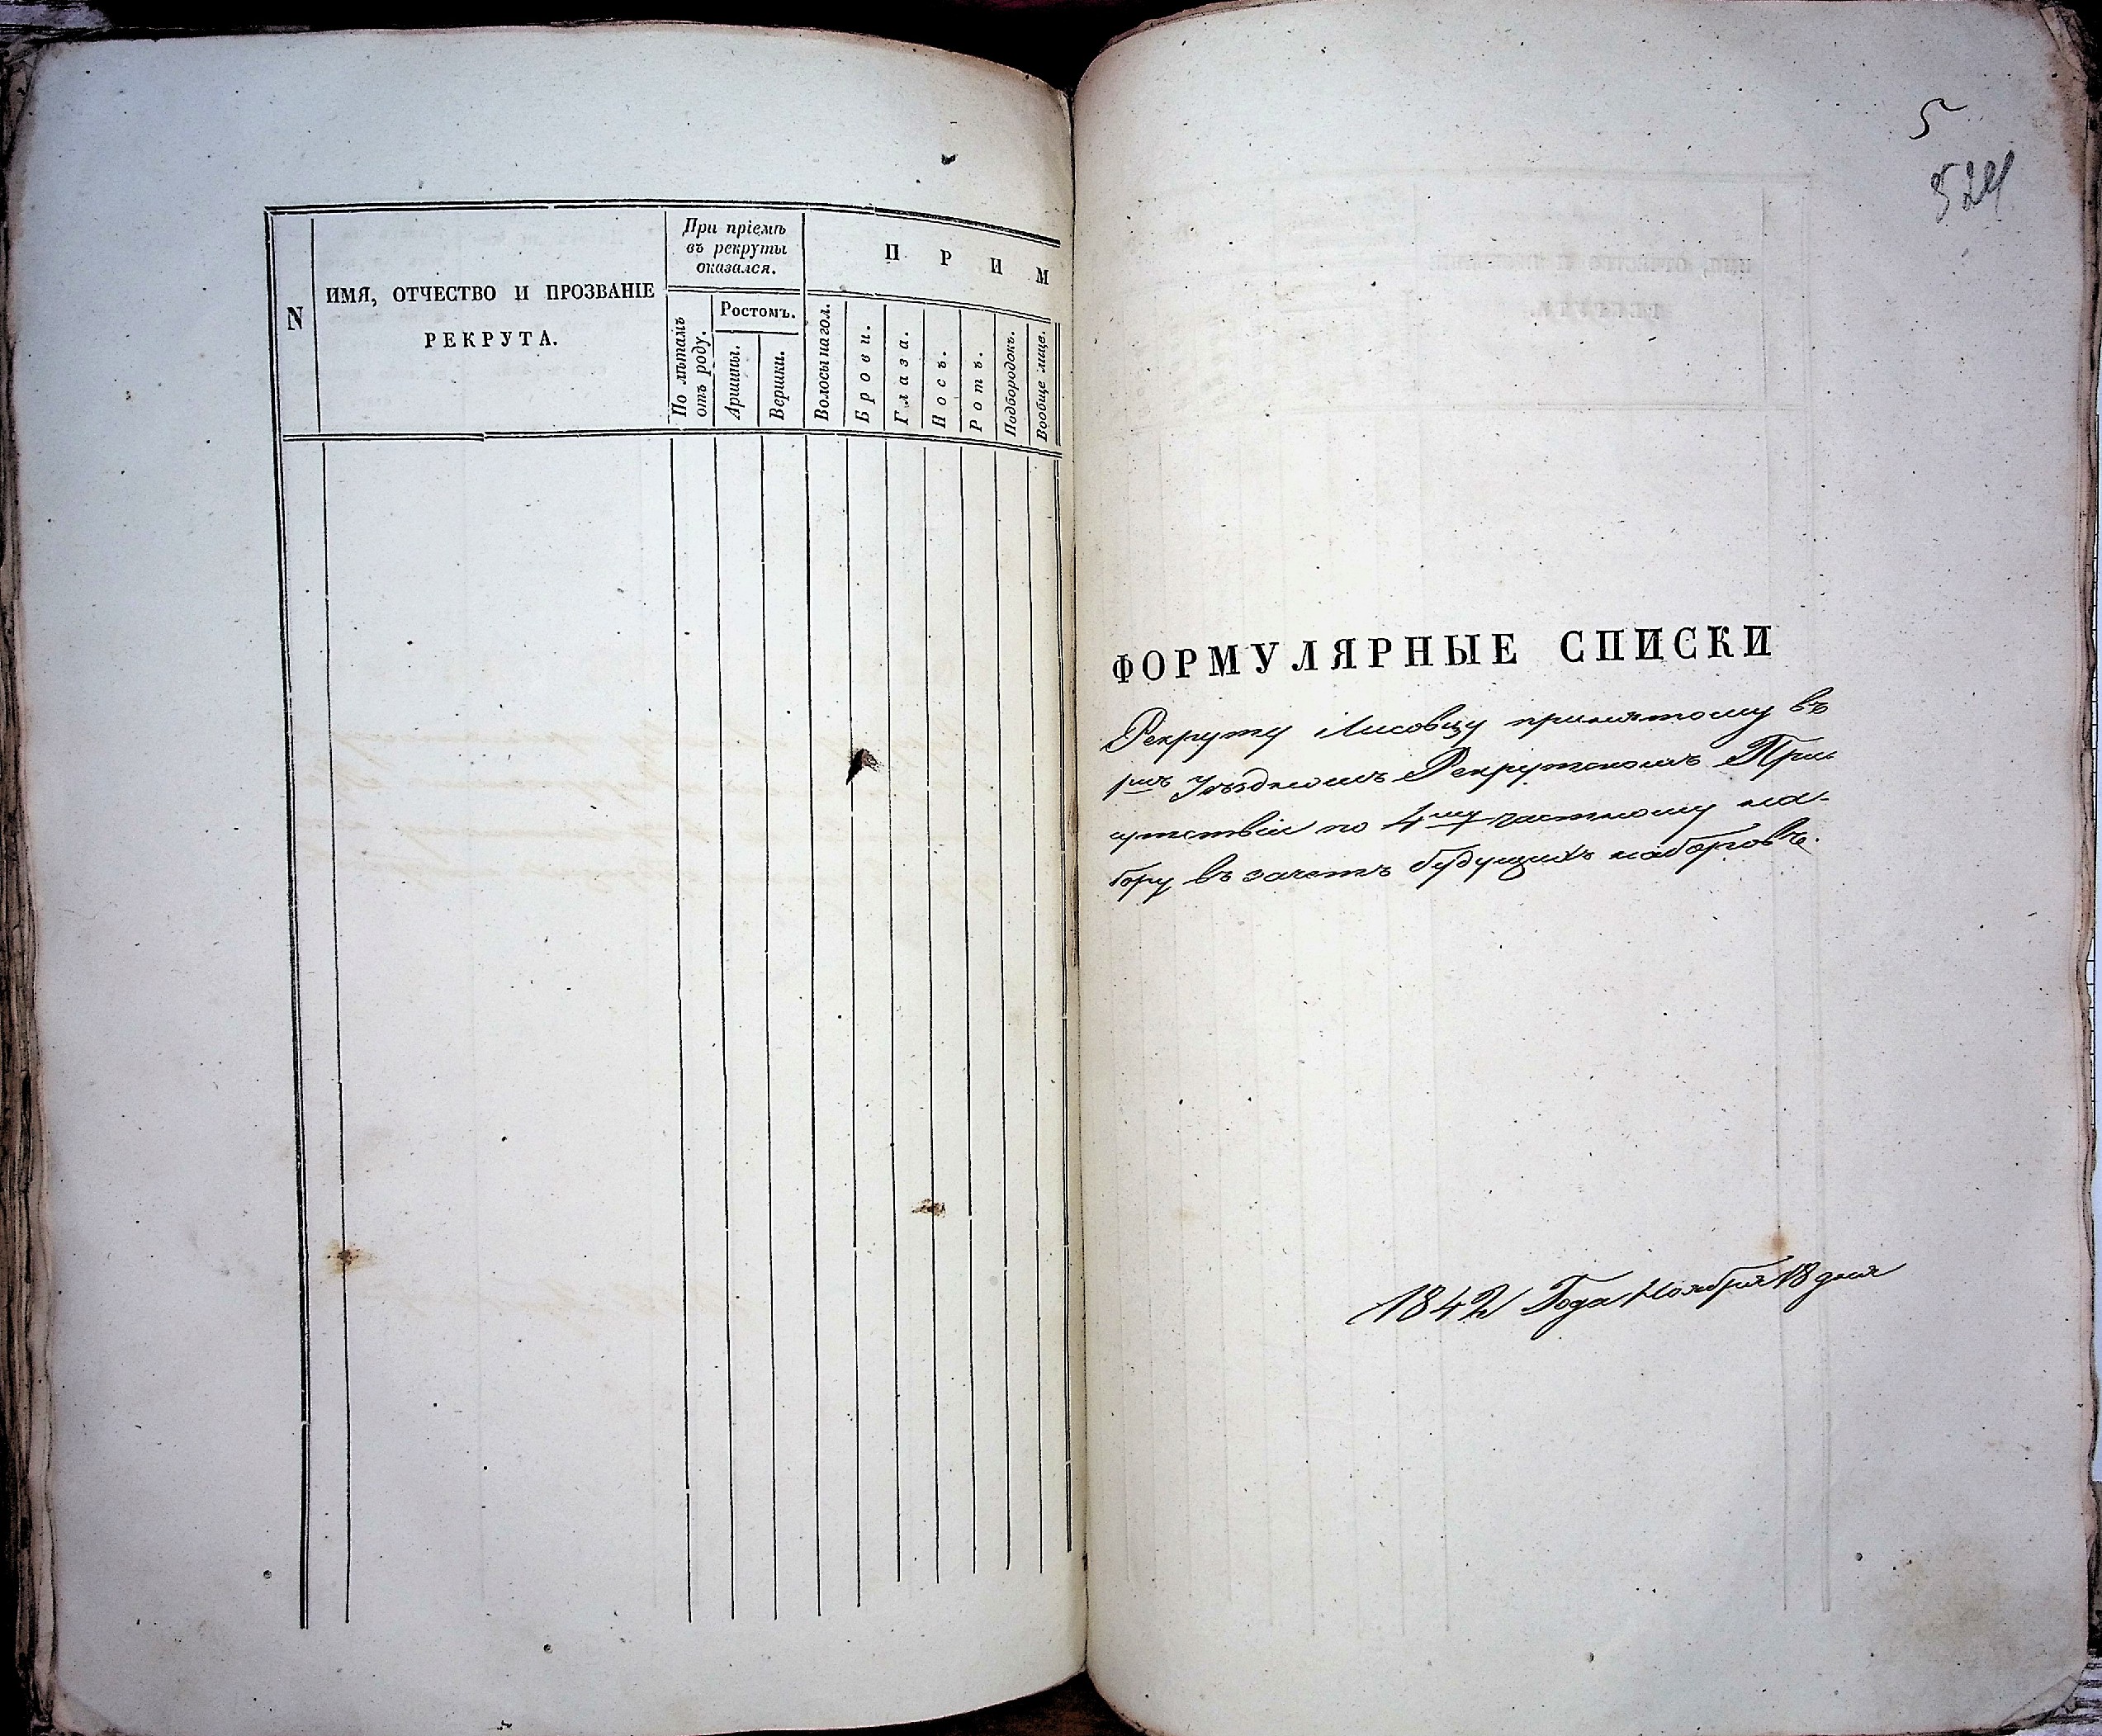 N
ИМЯ, ОТЧЕСТВО И ПРОЗВАНІЕ
РЕКРУТА.
При пріемѣ
въ рекруты
оказался.
По лѣтамъ
отъ роду.
Ростомъ.
Аршины.
Вершки.
П Р И М
Волосы на гол.
Брови.
Глаза.
Носъ.
Ротъ.
Подбородокъ.
Вообще лице.
5
524
ФОРМУЛЯРНЫЕ СПИСКИ
Рекруту Лисовцу принятому въ
Уѣздномъ Рекрутскомъ При
сутствіи по 4му частному на-
бору въ зачетъ будущихъ наборовъ.
1842 Года Ноября 18 дня